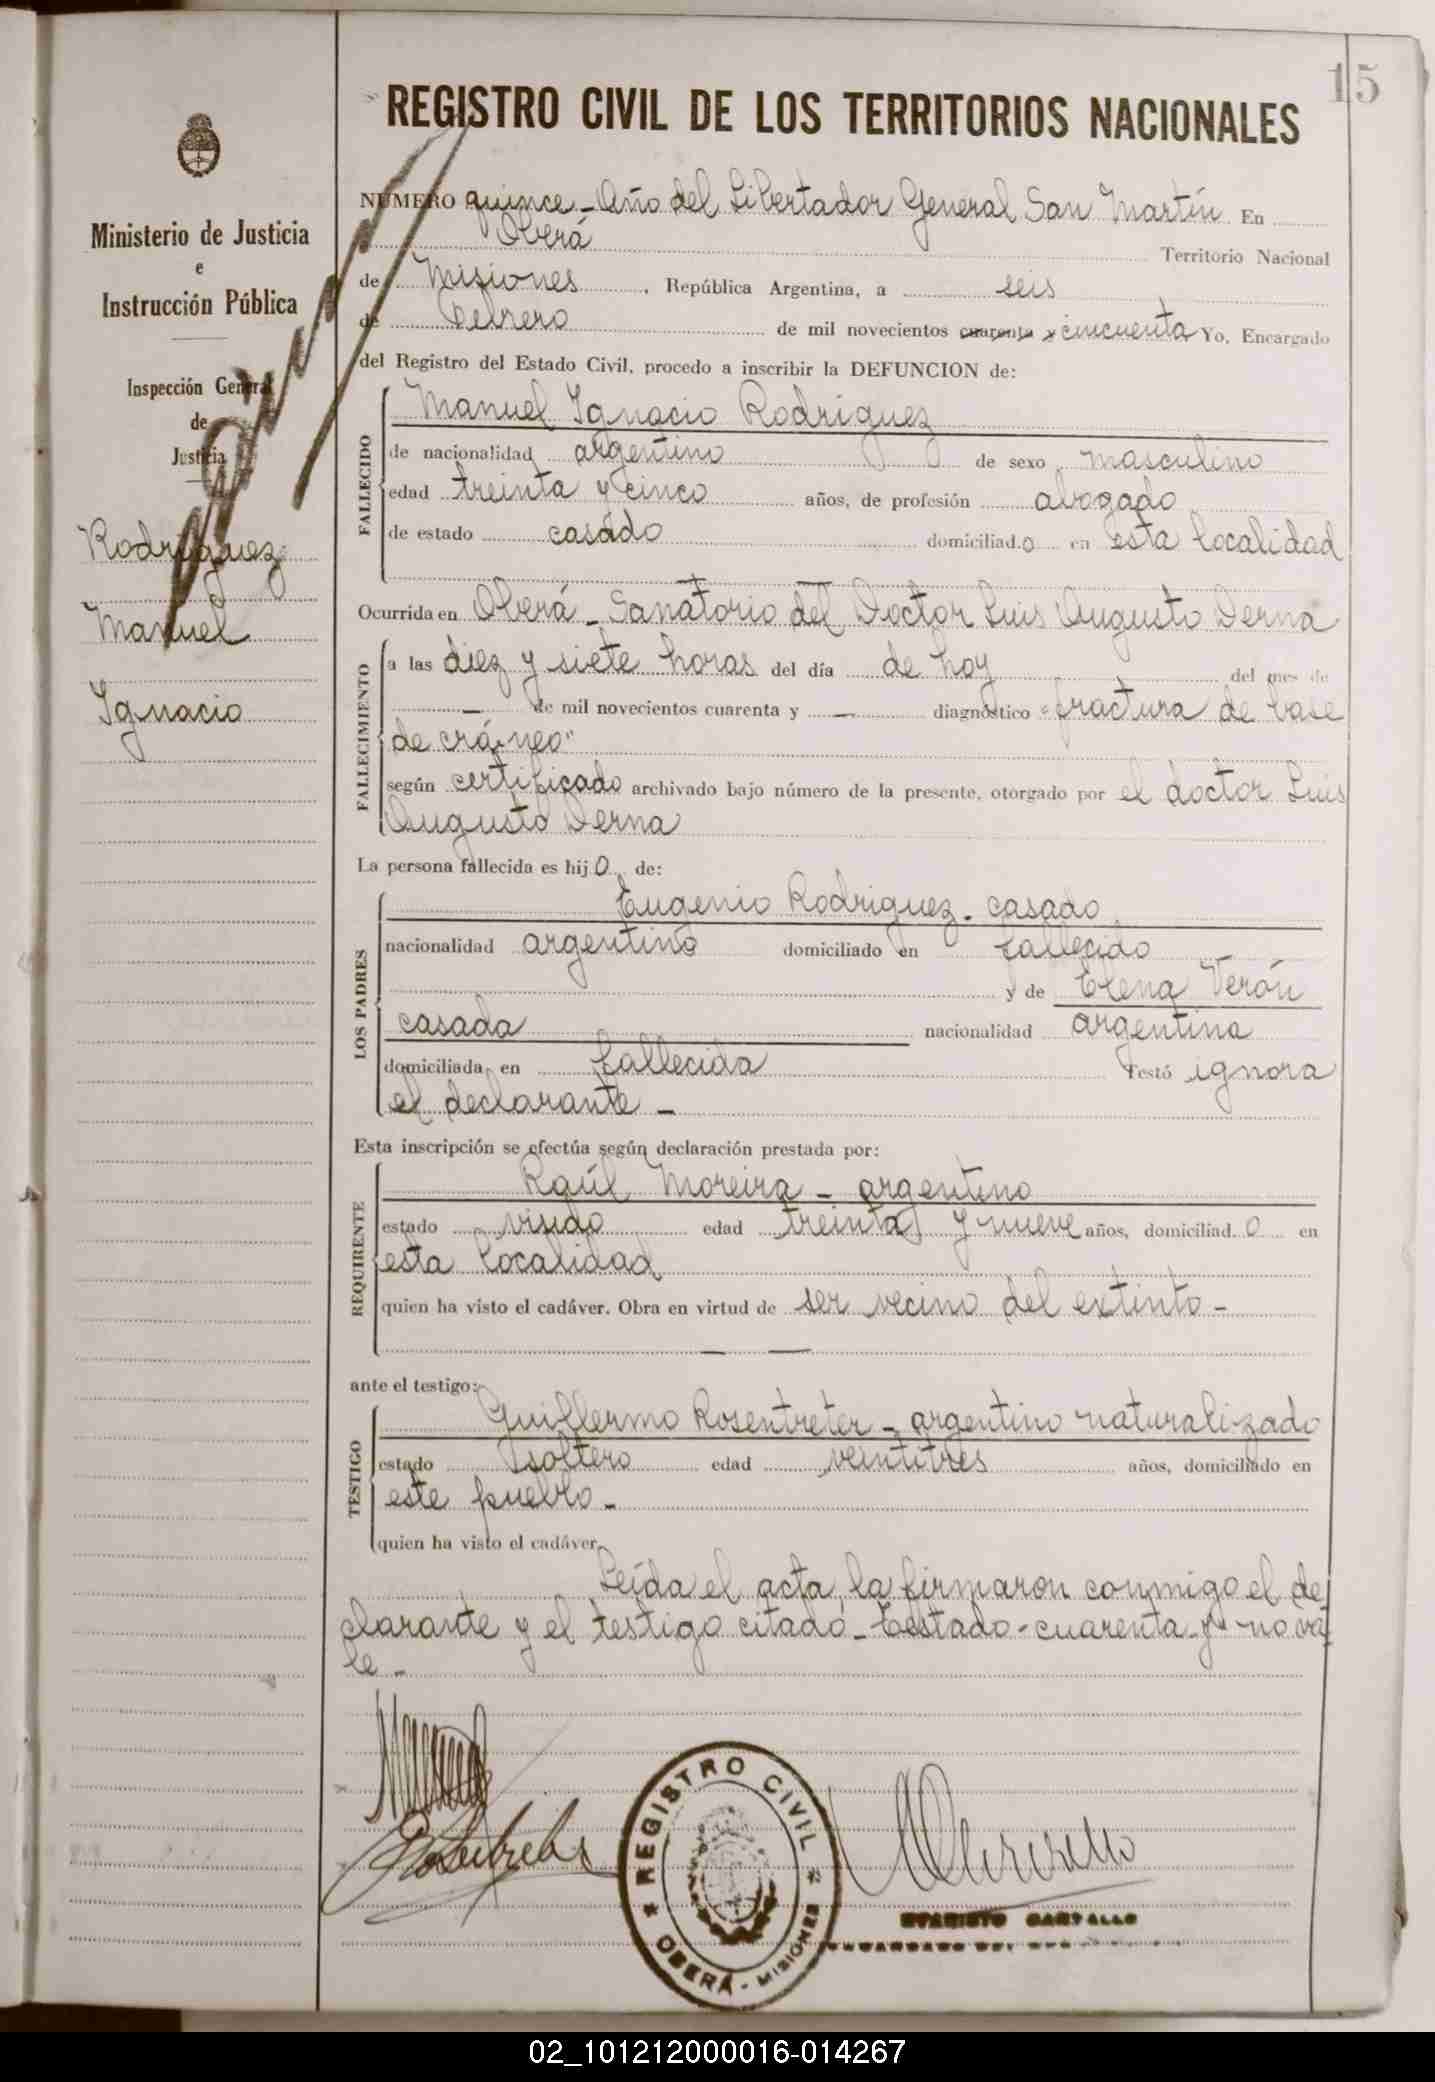 15
REGISTRO CIVIL DE LOS TERRITORIOS NACIONALES
Ministerio de Justicia
e
Instrucción Pública
Inspección General
de
Justicia
Rodriguez
Manuel
Ignacio
NUMERO quince - Año del Libertador General San Martín En
Oberá Territorio Nacional
de Misiones, República Argentina, a seis
de Febrero de mil novecientos cuarenta y cincuenta Yo, Encargado
del Registro del Estado Civil, procedo a inscribir la DEFUNCION de:
FALLECIDO
Manuel Ignacio Rodriguez
de nacionalidad argentino de sexo masculino
edad treinta y cinco años, de profesión abogado
de estado casado domiciliado en esta localidad
Ocurrida en Oberá - Sanatorio del Doctor Luis Augusto Derna
FALLECIMIENTO
a las diez y siete horas del día de hoy del mes de
— de mil novecientos cuarenta y — diagnóstico "fractura de base
de cráneo"
según certificado archivado bajo número de la presente, otorgado por el doctor Luis
Augusto Derna
La persona fallecida es hijo de:
LOS PADRES
Eugenio Rodriguez - casado
nacionalidad argentino domiciliado en fallecido
y de Elena Verón
casada nacionalidad argentina
domiciliada en fallecida Testó ignora
el declarante -
Esta inscripción se efectúa según declaración prestada por:
REQUIRENTE
Raúl Moreira - argentino
estado viudo edad treinta y nueve años, domiciliado en
esta localidad
quien ha visto el cadáver. Obra en virtud de ser vecino del extinto -
ante el testigo:
TESTIGO
Guillermo Rosentreter - argentino naturalizado
estado soltero edad veintitres años, domiciliado en
este pueblo -
quien ha visto el cadáver.
Leída el acta, la firmaron conmigo el de
clarante y el testigo citado - Testado - cuarenta y - no va
le -
REGISTRO CIVIL
OBERÁ - MISIONES
02_101212000016-014267